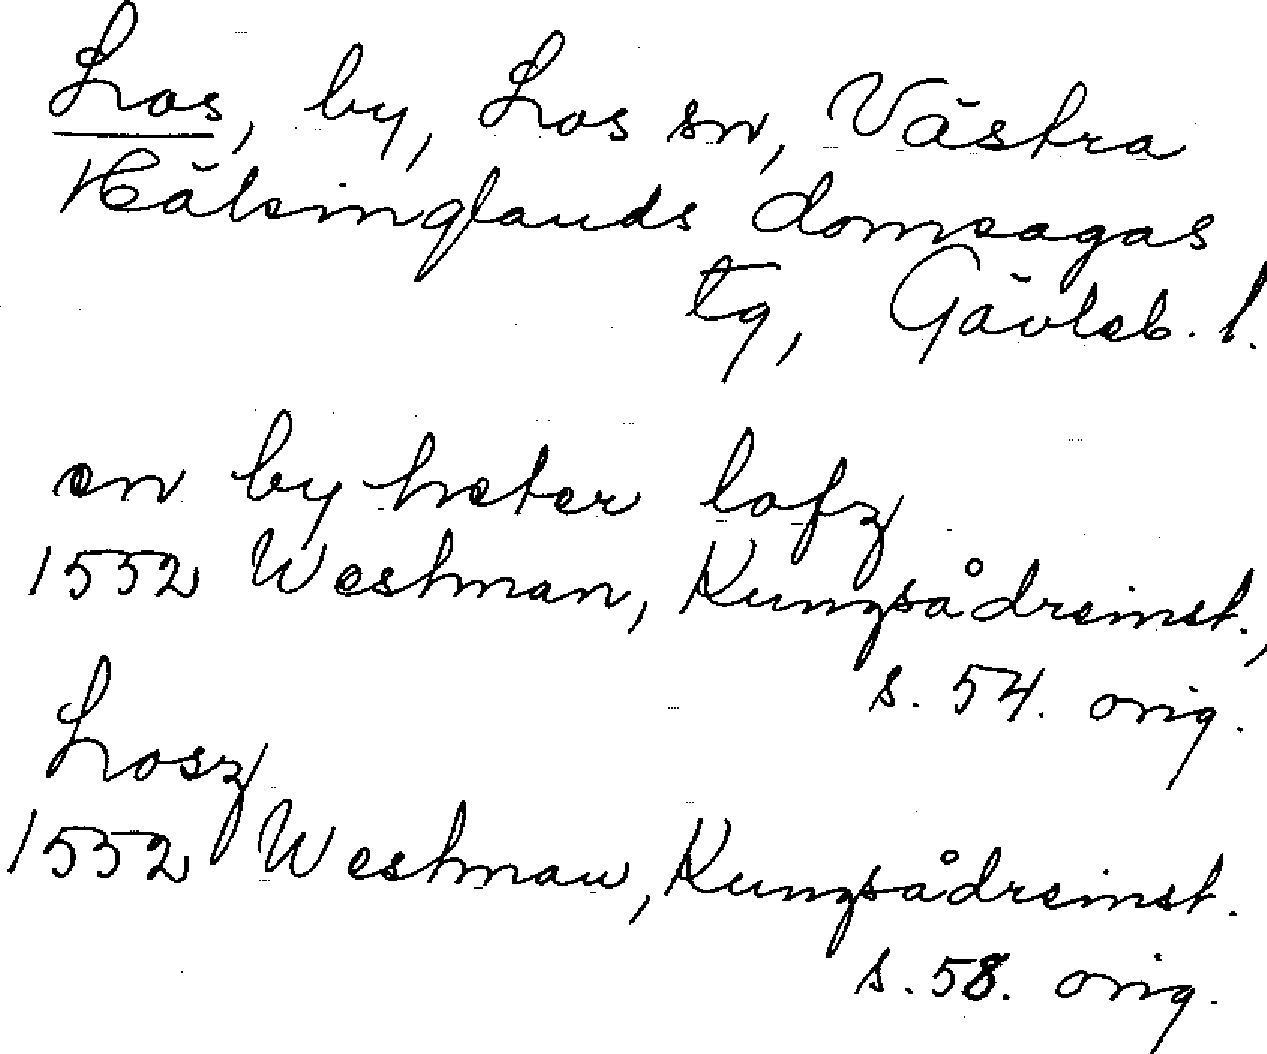 Los, by, Los sn, Västra
Hälsinglands domsagas
tg, Gävleb. l.
en by heter lofz
1552 Westman, Kungsådreinst.,
s. 54. orig.
Losz
1552 Westman, Kungsådreinst.
s. 58. orig.